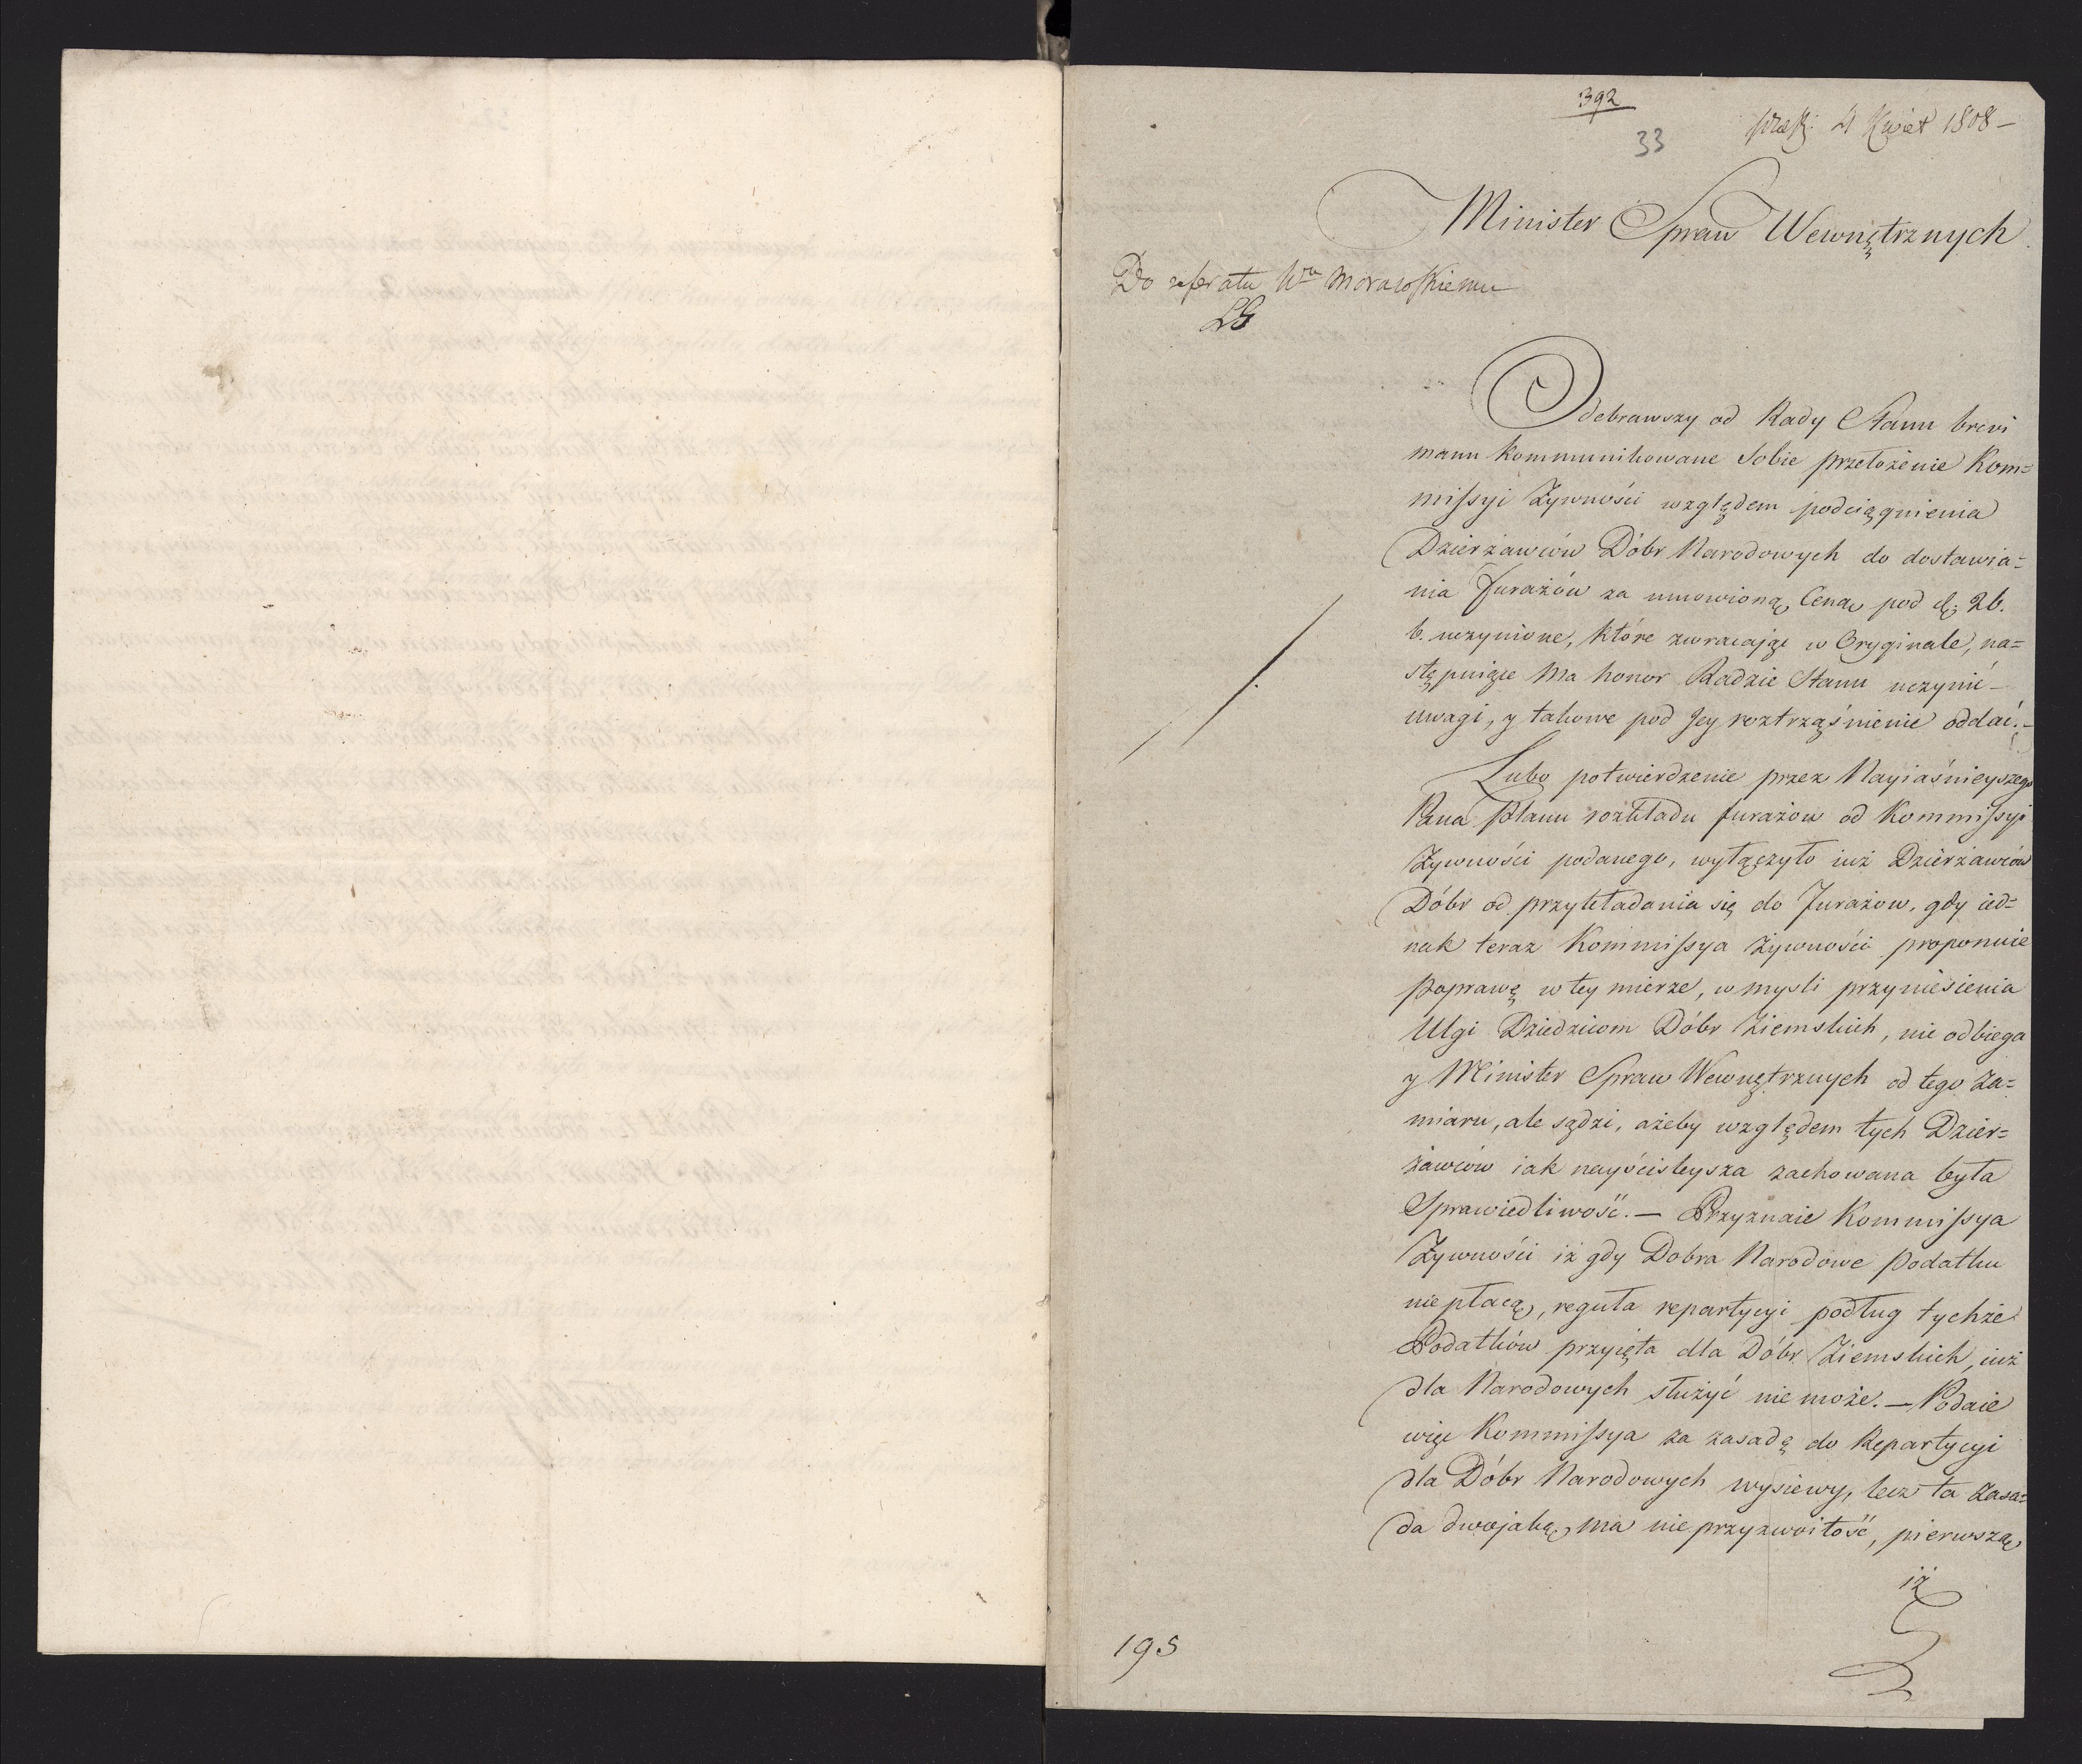 392
33
præs: 4 Kwiet 1808 –
Minister Spraw Wewnętrznych
Do referatu Wu Morawskiemu
LG
Odebrawszy od Rady Stanu brevi
manu kommunikowane Sobie przełożenie Kom=
missyi Żywności względem podciągnienia
Dzierżawców Dóbr Narodowych do dostawia=
nia Furażów za umowioną Cenę pod d: 26.
b. uczynione, które zwracając w Oryginale, na=
stępuiące ma honor Radzie Stanu uczynić –
uwagi, y takowe pod Jey roztrząśnienie oddać. –
Lubo potwierdzenie przez Nayiaśnieyszego
Pana Planu rozkładu furażow od Kommissyi
Żywności podanego, wyłączyło iuż Dzierżawców
Dóbr od przykładania się do Furażow, gdy ied=
nak teraz Kommissya Żywności proponuie
Poprawę w tey mierze, w mysli przyniesienia
Ulgi Dziedzicom Dóbr Ziemskich, nie odbiega
y Minister Spraw Wewnętrznych od tego Za=
miaru, ale sądzi, ażeby względem tych Dzier=
żawców iak nayścisleysza zachowana była
Sprawiedliwość. – Przyznaie Kommissya
Żywności iż gdy Dobra Narodowe Podatku
nie płacą, reguła repartycyi podług tychże
Podatków przyięta dla Dóbr Ziemskich, iuż
dla Narodowych służyć nie może. – Podaie
więc Kommissya za zasadę do Repartycyi
dla Dóbr Narodowych wysiewy, lecz ta Zasa=
da dwojaką ma nieprzyzwoitość, pierwszą
iż
195